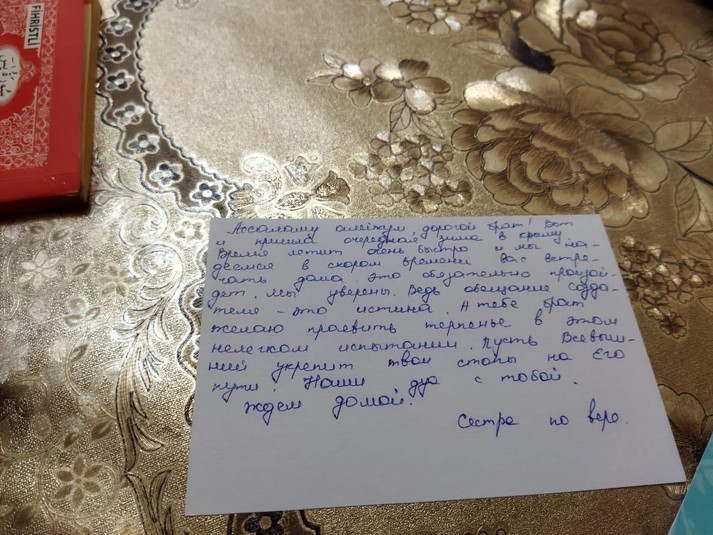 FIHRISTLI
Ассаляму алейкум, дорогой брат! Вот
и пришла очередная зима в Крыму
Время летит очень быстро и мы на-
деемся в скором времени вас встре-
чать дома. Это обязательно произой-
дет. Мы уверены. Ведь обещание Созда-
теля - это истина. А тебе брат
желаю проявить терпенье в этом
нелегком испытании. Пусть Всевыш-
ний укрепит твои стопы на Его
пути. Наши дуа с тобой.
Ждем домой.
Сестра по вере.